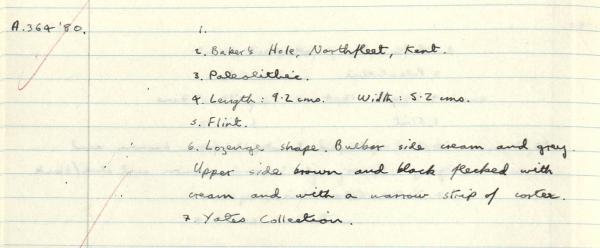 A.364 '80. 1.
2. Baker's Hole, Northfleet, Kent.
3. Paleolithic.
4. Length: 9.2 cms. Width: 5.2 cms.
5. Flint.
6. Lozenge shape. Bulbar side cream and grey.
Upper side brown and black flecked with
cream and with a narrow strip of cortex.
7. Yates Collection.